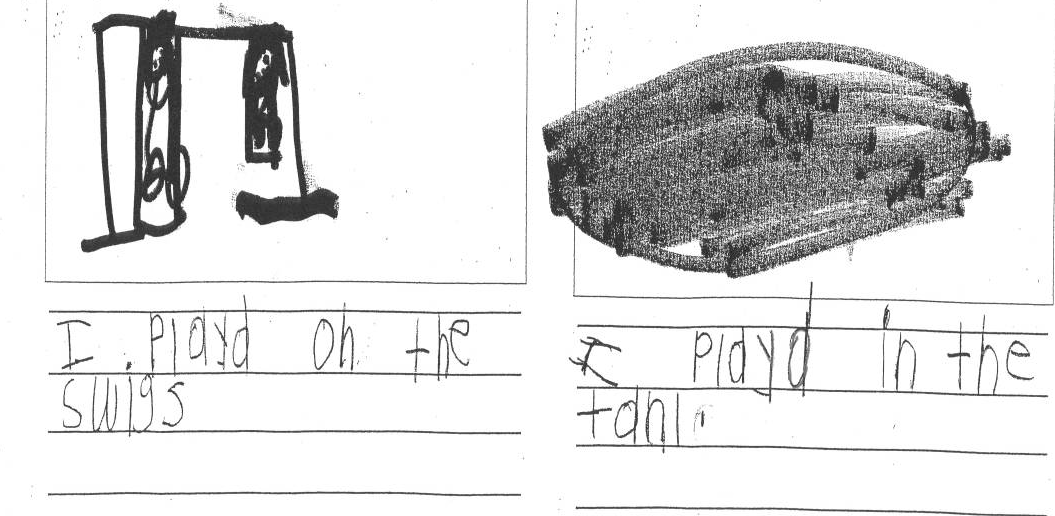 I playd on the
swigs
I playd in the
tanl